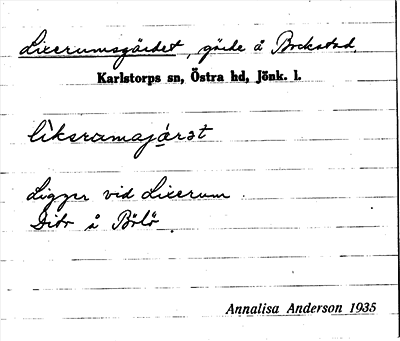 Lixerumsgärdet, gärde å Bockstad,
Karlstorps sn, Östra hd, Jönk. l.
lìksramajạ́rət
Ligger vid Lixerum.
å Börlö.
Annalisa Anderson 1935